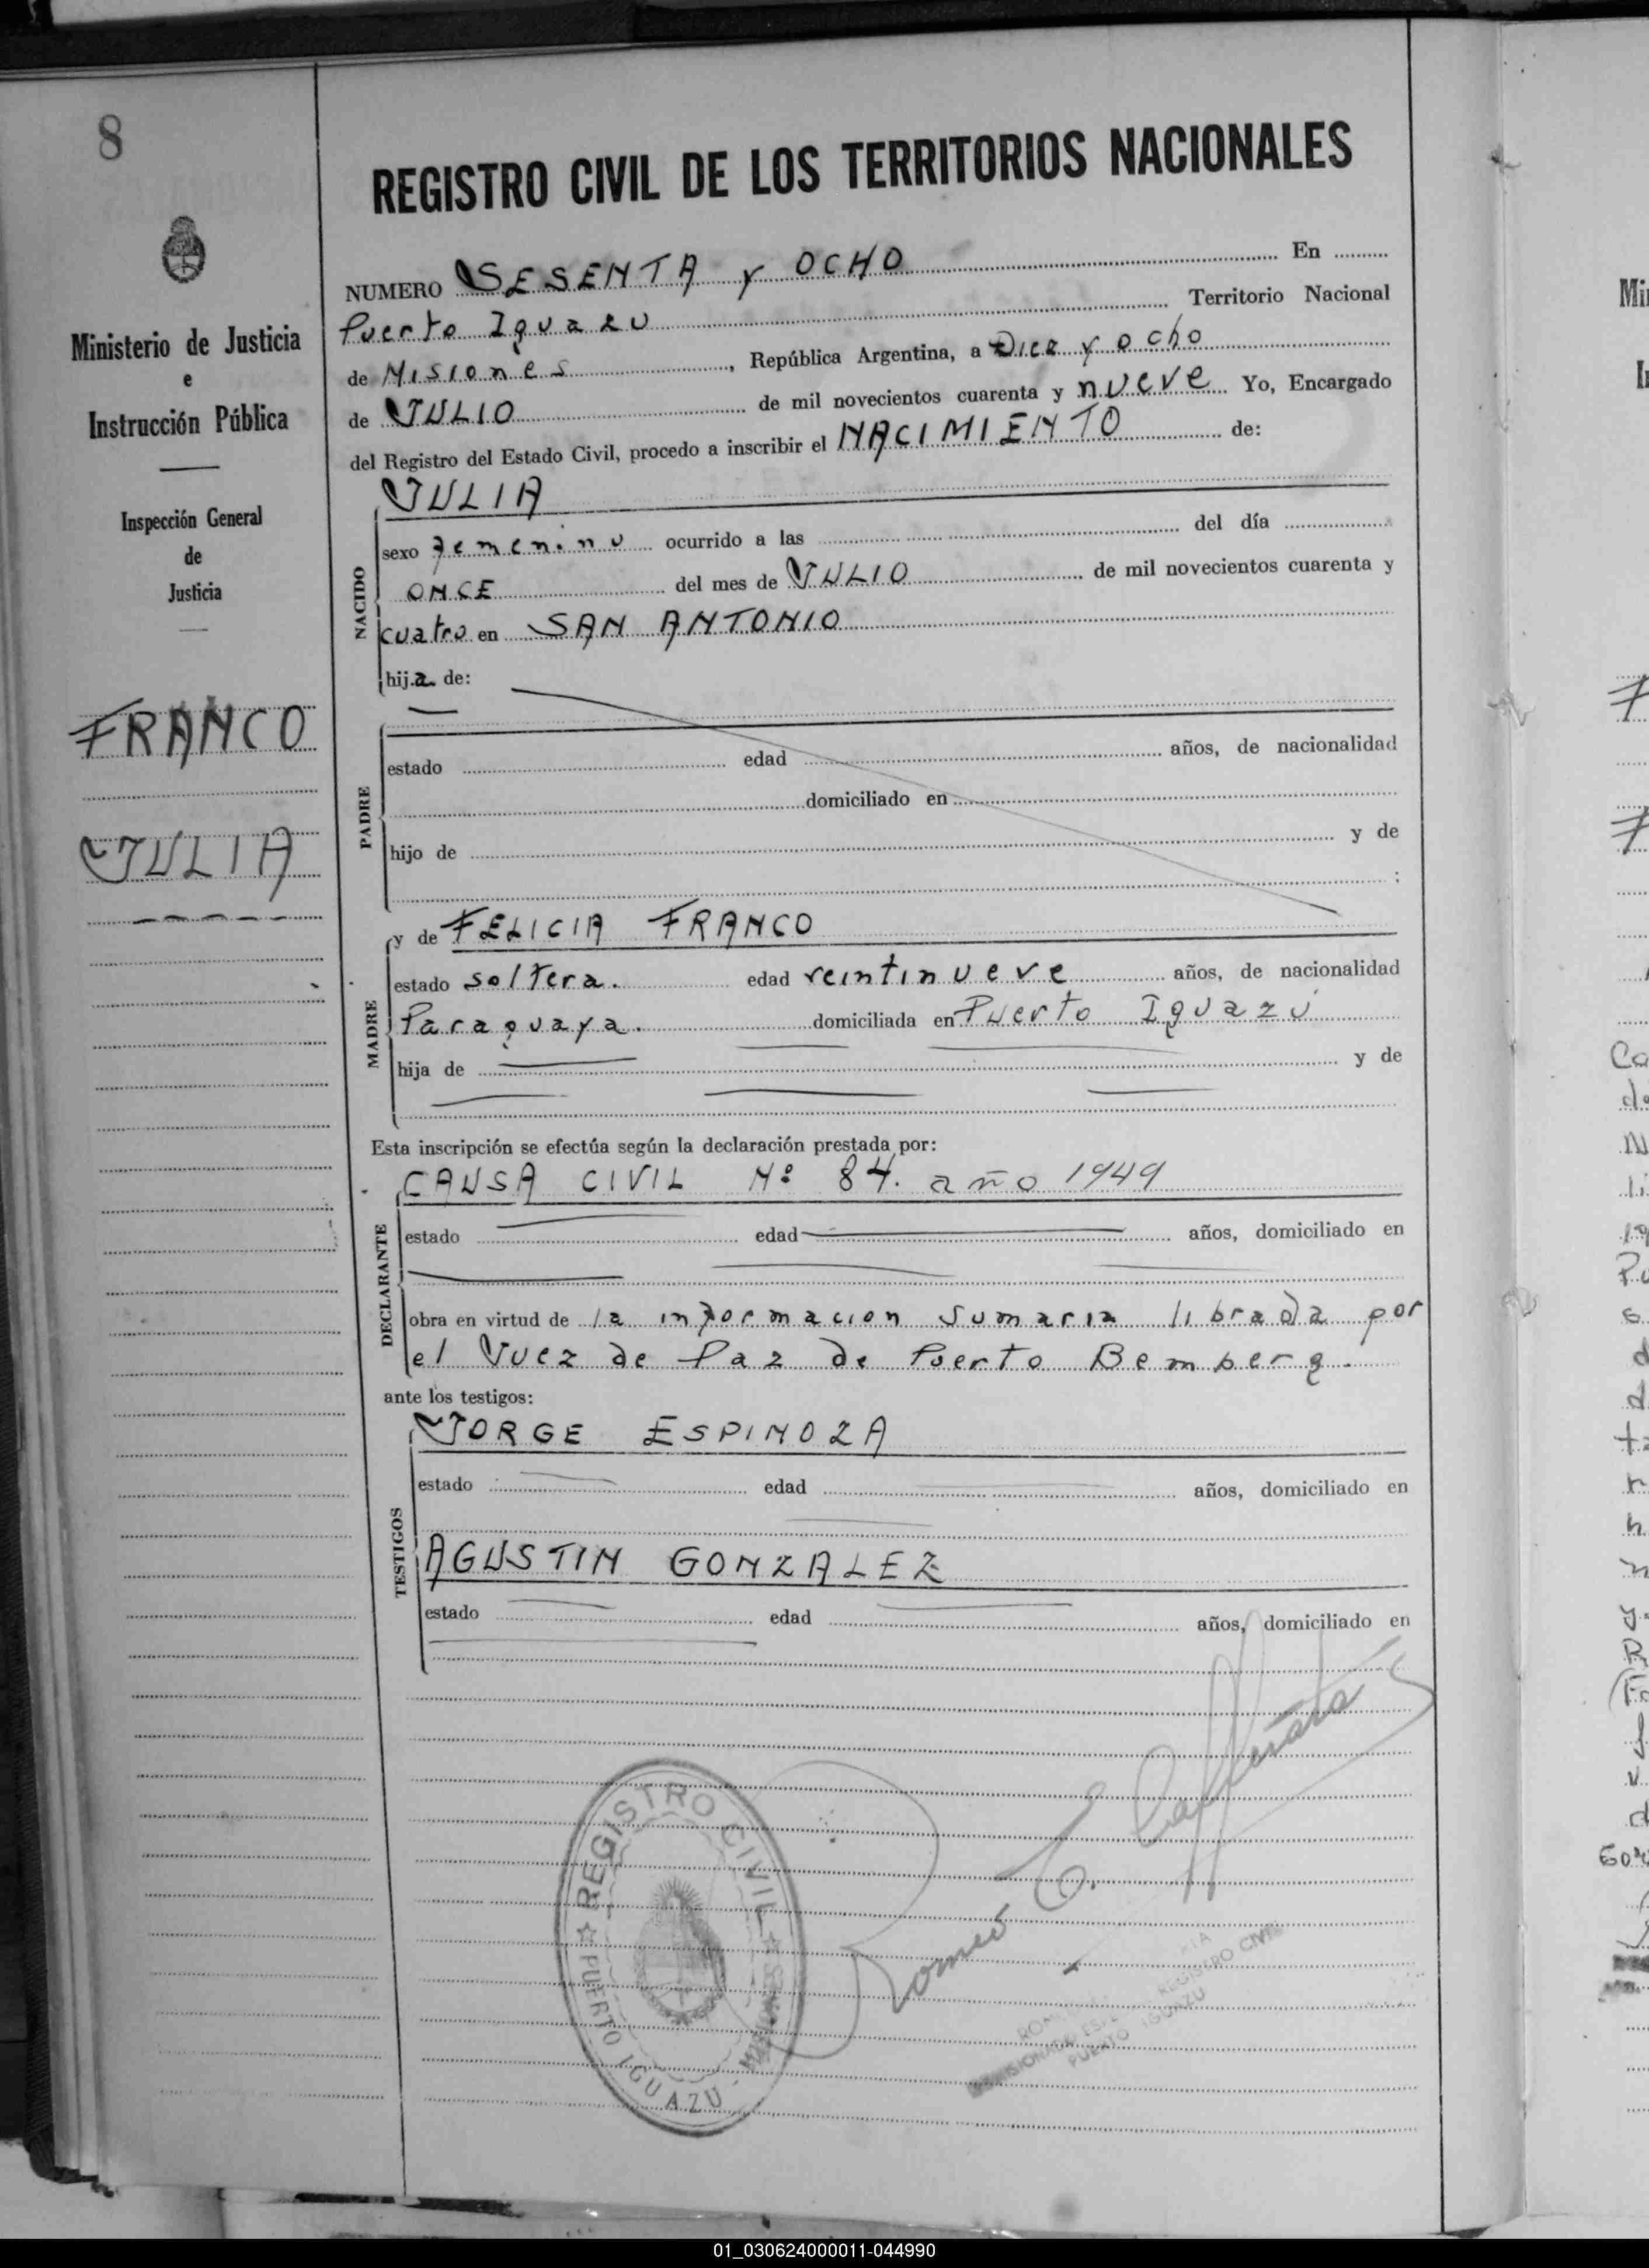 8
Ministerio de Justicia
e
Instrucción Pública
Inspección General
de
Justicia
FRANCO
JULIA
REGISTRO CIVIL DE LOS TERRITORIOS NACIONALES
NUMERO SESENTA y OCHO En
Puerto Iguazu Territorio Nacional
de Misiones, República Argentina, a Diez y ocho
de JULIO de mil novecientos cuarenta y nueve Yo, Encargado
del Registro del Estado Civil, procedo a inscribir el NACIMIENTO de:
NACIDO
JULIA
sexo femenino ocurrido a las del día
ONCE del mes de JULIO, de mil novecientos cuarenta y
cuatro en SAN ANTONIO
hija de:
PADRE
estado edad años, de nacionalidad
domiciliado en
hijo de y de
;
MADRE
y de FELICIA FRANCO
estado soltera. edad veintinueve años, de nacionalidad
Paraguaya. domiciliada en Puerto Iguazú
hija de y de
Esta inscripción se efectúa según la declaración prestada por:
DECLARANTE
CAUSA CIVIL Nº 84. año 1949
estado edad años, domiciliado en
obra en virtud de la informacion sumaria librada por
el Juez de Paz de Puerto Bemberg.
ante los testigos:
TESTIGOS
JORGE ESPINOZA
estado edad años, domiciliado en
AGUSTIN GONZALEZ
estado edad años, domiciliado en
REGISTRO CIVIL
PUERTO IGUAZU - MISIONES
Romeo E.
REGISTRO CIVIL
PUERTO IGUAZU
01_030624000011-044990